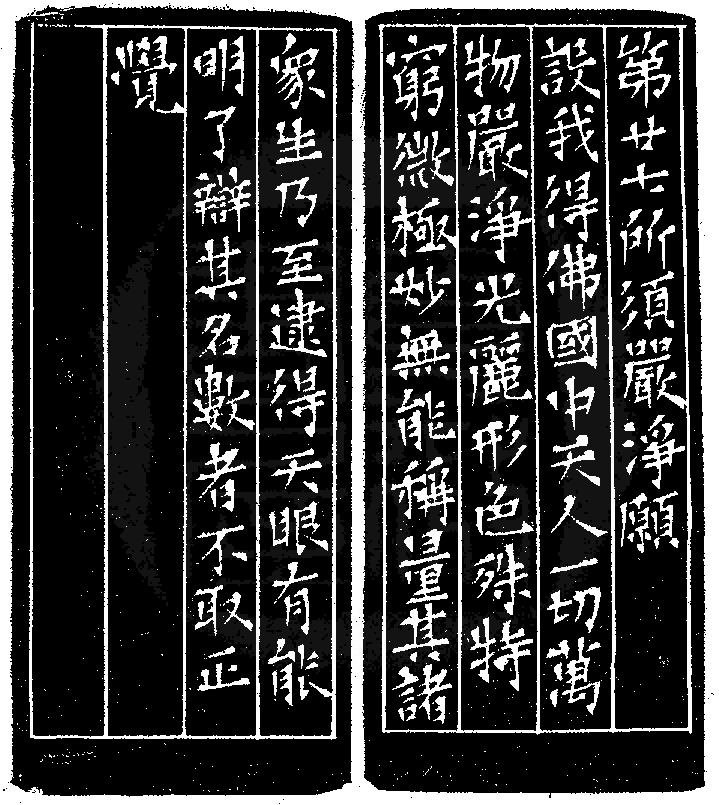 第廿七所須嚴淨願
設我得佛國中天人一切萬
物嚴淨光麗形色殊特
窮微極妙無能稱量其諸
衆生乃至逮得天眼有能
明了辯其名數者不取正
覺